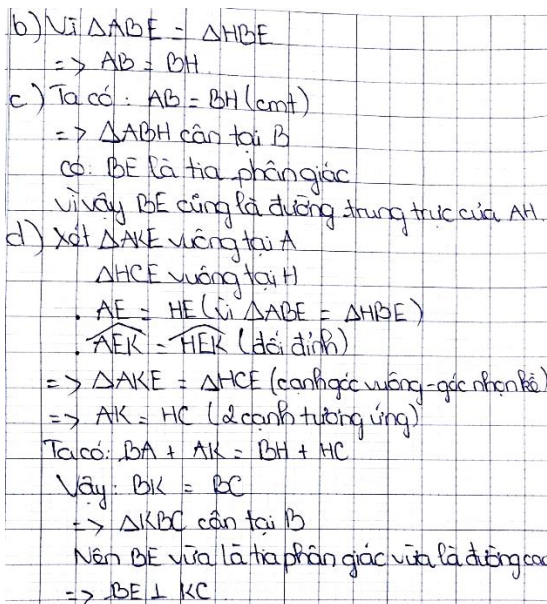 b) Vì ΔABE = ΔHBE
=> AB = BH
c) Ta có: AB = BH (cmt)
=> ΔABH cân tại B
có: BE là tia phân giác
vì vậy BE cũng là đường trung trực của AH.
d) Xét ΔAKE vuông tại A
ΔHCE vuông tại H
. AE = HE (vì ΔABE = ΔHBE)
. AEK = HEK (đối đỉnh)
=> ΔAKE = ΔHCE (cạnh góc vuông - góc nhọn kề)
=> AK = HC (2 cạnh tương ứng)
Ta có: BA + AK = BH + HC
Vậy: BK = BC
=> ΔKBC cân tại B
Nên BE vừa là tia phân giác vừa là đường cao
=> BE ⊥ KC